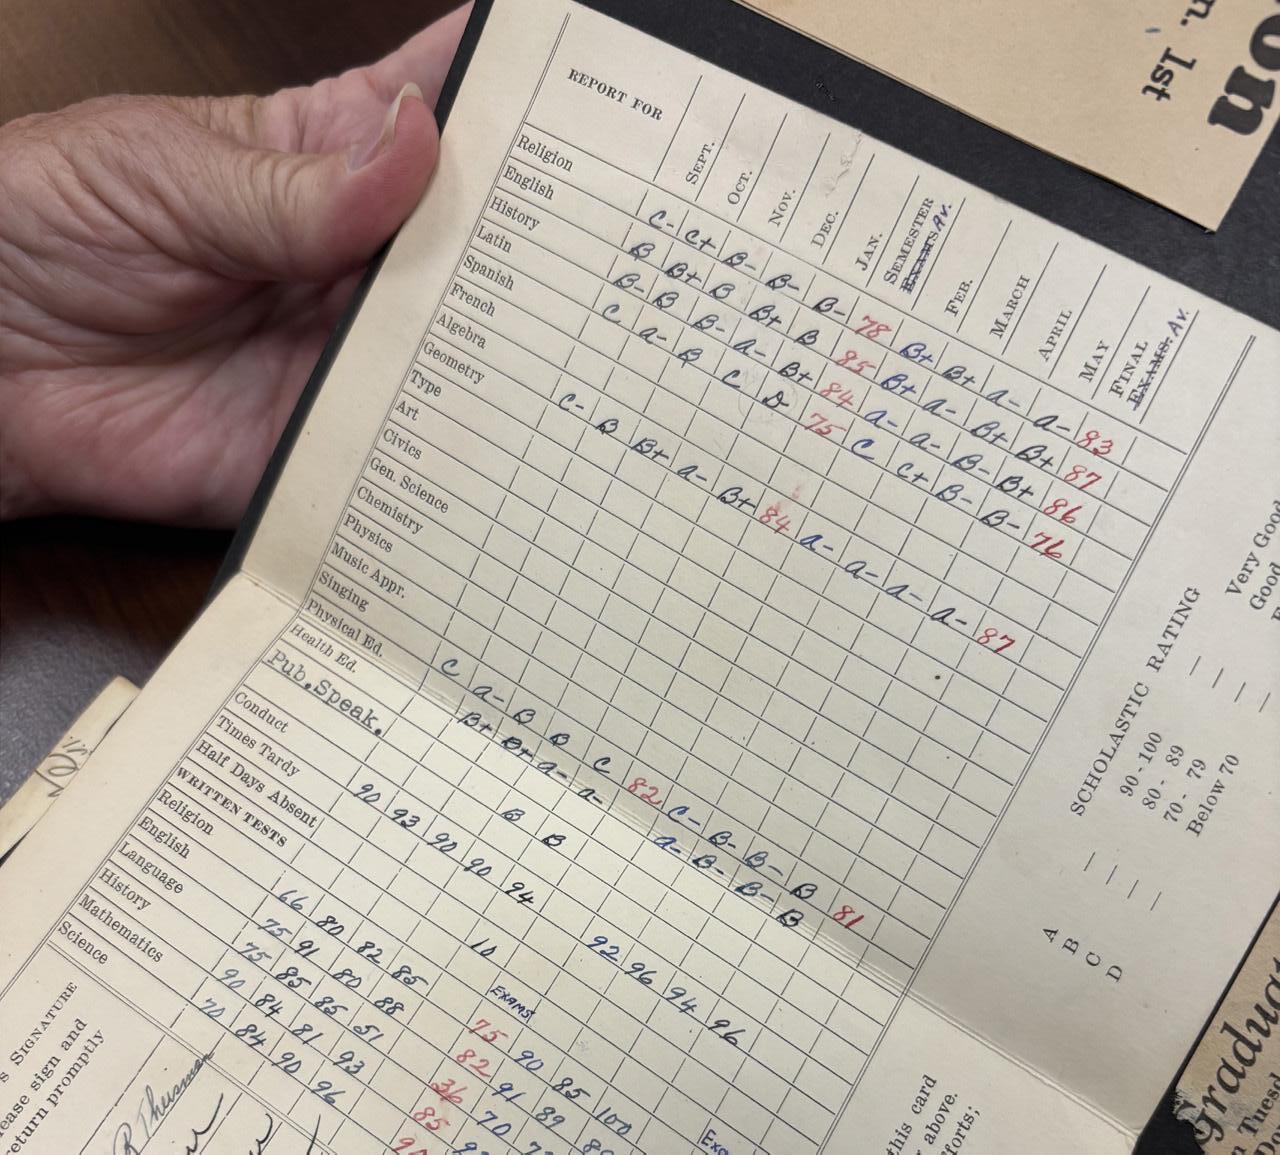 on
n. 1st
REPORT FOR SEPT. OCT. NOV. DEC. JAN. SEMESTER EXAMS Av. FEB. MARCH APRIL MAY FINAL EXAMS. Av.
Religion C- C+ B- B- B- 78 B+ B+ a- a- 83
English B B+ B B+ B 85 B+ a- B+ B+ 87
History B- B B- a- B+ 84 a- a- B- B+ 86
Latin C a- B C D- 75 C C+ B- B- 76
Spanish
French
Algebra C- B B+ a- B+ 84 a- a- a- a- 87
Geometry
Type
Art
Civics
Gen. Science
Chemistry
Physics
Music Appr.
Singing C a- B B C 82 C- B- B- B 81
Physical Ed. B+ B+ a- a- a- B- B- B
Health Ed.
Pub. Speak. B B
Conduct 90 93 90 90 94 92 96 94 96
Times Tardy
Half Days Absent 10
WRITTEN TESTS EXAMS
Religion 66 80 82 85 75 90 85 100
English 75 91 80 88 82 91 89
Language 75 85 85 51 36 70
History 90 84 81 93 85
Mathematics 70 84 90 96
Science
SCHOLASTIC RATING
A — 90 - 100 — Very Good
B — 80 - 89 — Good
C — 70 - 79 —
D — Below 70 —
SIGNATURE
sign and
return promptly
R Theisman
this card
above.
Graduat
Tuesd